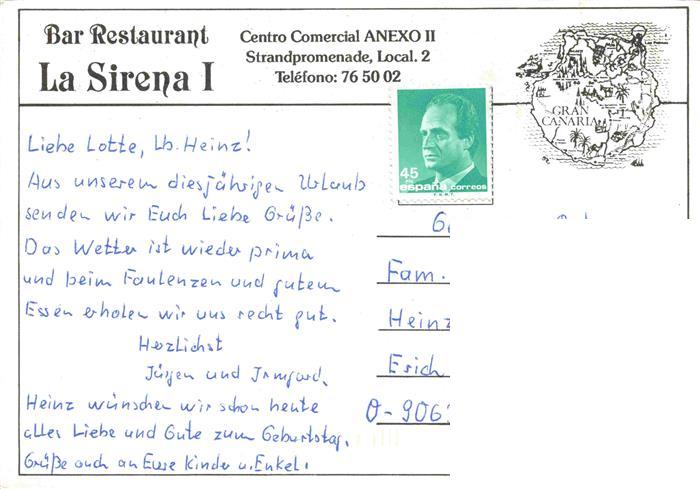 Bar Restaurant
La Sirena I
Centro Comercial ANEXO II
Strandpromenade, Local. 2
Teléfono: 76 50 02
GRAN
CANARIA
45
españa correos
Liebe Lotte, Lb. Heinz!
Aus unserem diesjährigen Urlaub
senden wir Euch Liebe Grüße.
Das Wetter ist wieder prima
und beim Faulenzen und gutem
Essen erholen wir uns recht gut.
Herzlichst
Jürgen und Irmgard.
Heinz wünschen wir schon heute
alles Liebe und Gute zum Geburtstag.
Grüße auch an Eure Kinder u. Enkel.
Fam.
Heinz
Erich
O-906